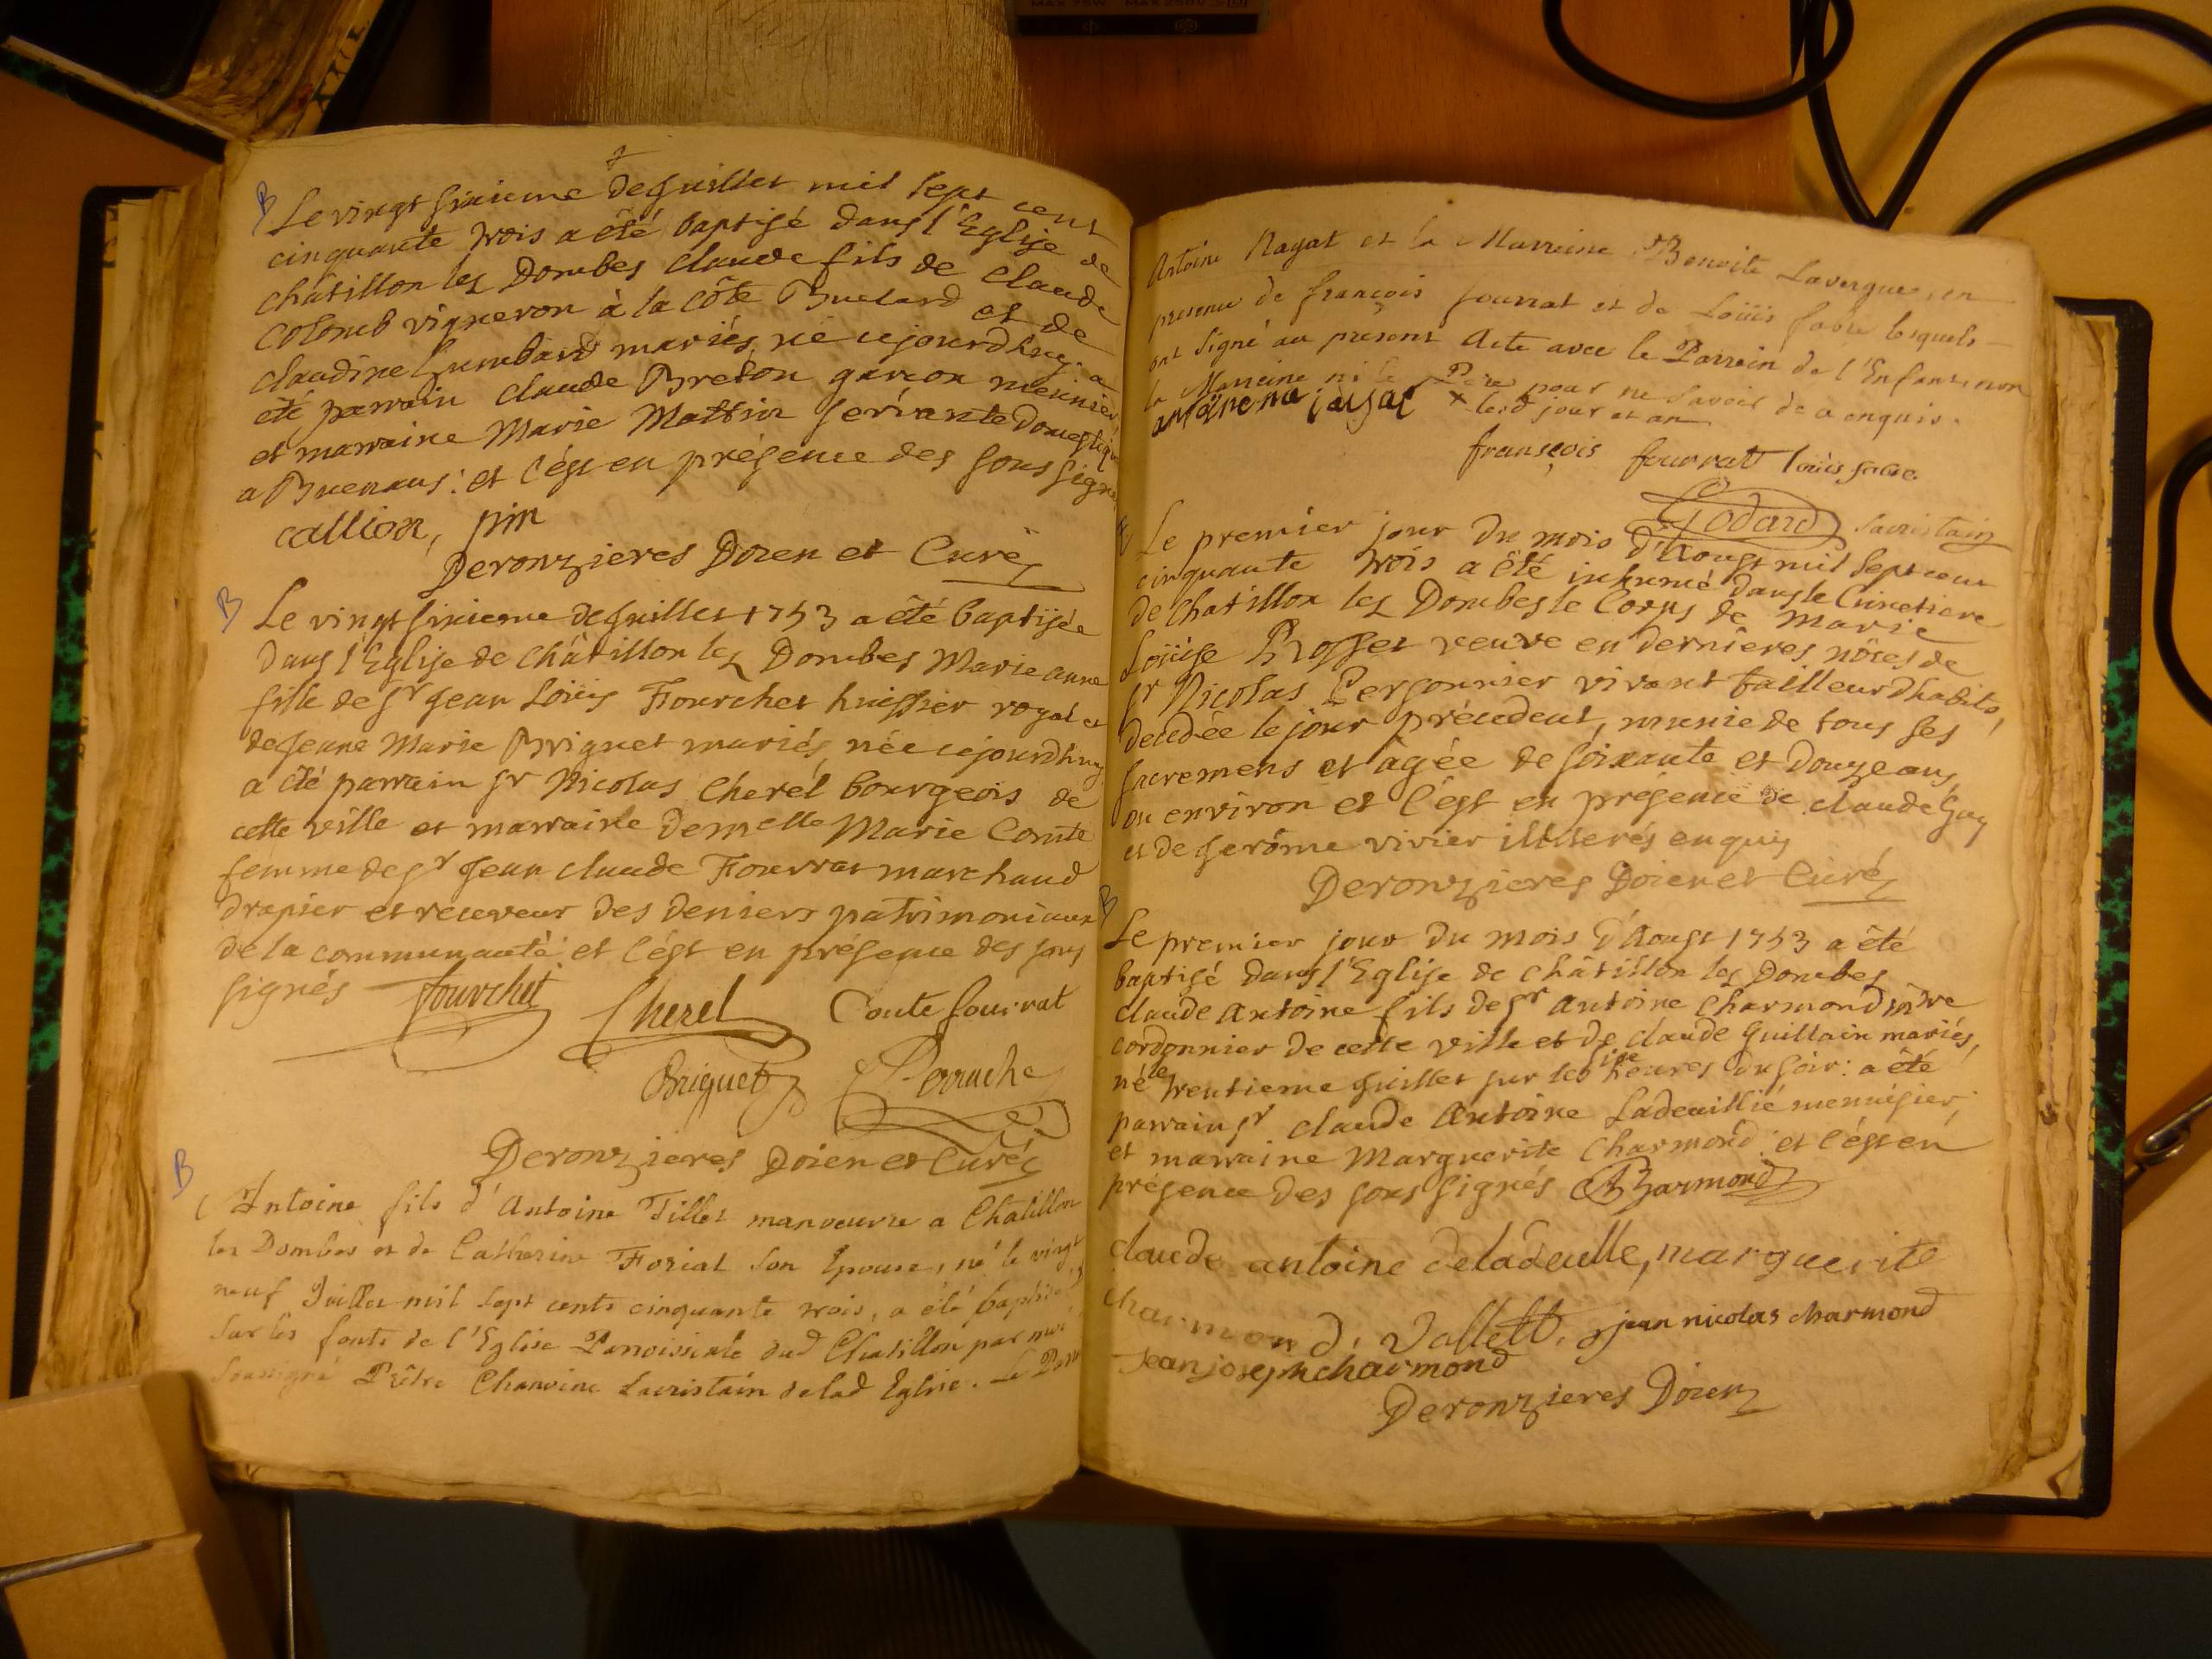 B Le vingt sixieme de Juillet mil sept cent
cinquante trois a été baptisé dans l'Eglise de
châtillon les Dombes claude fils de claude
colomb vigneron à la côte Buelard et de
claudine humbard mariés, né cejourdhuy: a
été parrain claude Breton garçon meunier,
et marraine Marie Mattin servante Domestique
a Buenans: et c'est en présence des sous signés
callion, pin
Deronzieres Doien et Curé
B Le vingt sixieme de Juillet 1753 a été baptisée
dans l'Eglise de châtillon les Dombes Marie anne
fille de sr Jean Loüis Fourchet huissier royal et
de Jeane Marie Briguet mariés, née cejourdhuy
a été parrain sr Nicolas Cherel bourgeois de
cette ville et marraine demelle Marie Comte
femme de sr Jean claude Fourrat marchand
drapier et receveur des deniers patrimoniaux
de la communauté: et c'est en présence des sous
signés Fourchet Cherel Conte fourrat
Briguet Perruche
Deronzieres Doien et Curé
B Antoine fils d'Antoine Tillet manoeuvre a Chatillon
les Dombes et de Catherine Foriat son Epouse, né le vingt
neuf Juillet mil sept cents cinquante trois, a été baptisé
sur les fonts de l'Eglise Paroissiale dud Chatillon par moi
soussigné Prêtre Chanoine Sacristain de lad Eglise. Le
Antoine Nayat et la Marreine Benoite Lavergne, en
presence de françois fourrat et de Loüis fabre lesquels
ont signé au present Acte avec le Parrein de l'Enfant, non
la Marreine ni le Pere pour ne savoir de a enquis.
antoine × lesd jour et an
franseois fourrat loüis fabre
Godard sacristain
Le premier jour du mois d'Aoust mil sept cent
cinquante trois a été inhumé dans le Cimetiere
de châtillon les Dombes le Corps de Marie
Loüise Rosset veuve en dernieres nôces de
sr Nicolas Personnier vivant tailleur dhabits,
decedée le jour précedent, munie de tous ses
sacremens et agée de soixante et douze ans
ou environ et c'est en présence de claude Guy
et de Jerôme vivier illiterés enquis
Deronzieres Doien et Curé
B Le premier jour du mois d'Aoust 1753 a été
baptisé dans l'Eglise de châtillon les Dombes
claude Antoine fils de sr Antoine Charmond mtre
cordonnier de cette ville et de claude Guillain mariés,
né le trentieme Juillet sur les six heures du soir: a été
parrain sr claude Antoine Ladeuillié menuisier,
et marraine Marguerite Charmond: et c'est en
présence des sous signés Charmond
claude antoine deladeulle, marguerite
charmond, Vallett, jean nicolas charmond
Jean joseph charmond
Deronzieres Doien